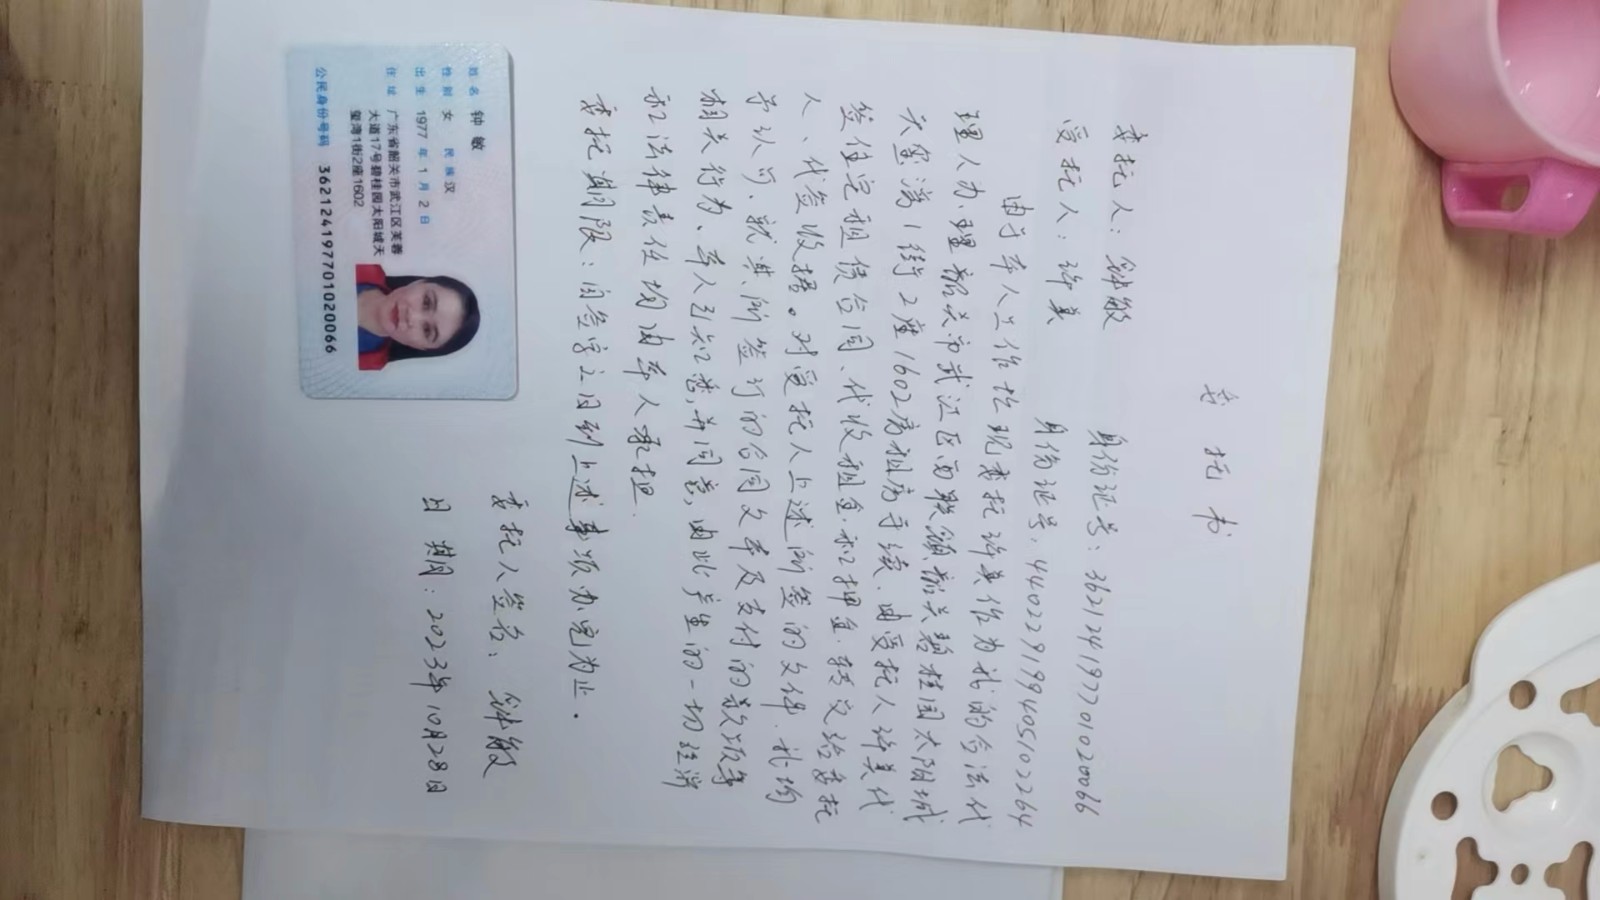 委托书
委托人：钟敏 身份证号：362124197701020066
受托人：许美 身份证号：440229199405102264
由于本人工作忙现委托许美作为我的合法代
理人办理韶关市武江区西联镇韶关碧桂园太阳城
天玺湾1街2座1602房租房手续、由受托人许美代
签住宅租赁合同、代收租金和押金转交给委托
人、代签收据。对受托人上述所签的文件、我均
予认可、就其所签订的合同文本及支付的款项等
相关行为、本人已知悉，并同意，由此产生的一切经济
和法律责任均由本人承担.
委托期限：自签字之日到上述事项办完为止.
委托人签名：钟敏
日期：2023年10月28日
姓名 钟敏
性别 女 民族 汉
出生 1977年1月2日
住址 广东省韶关市武江区芙蓉
大道17号碧桂园太阳城天
玺湾1街2座1602
公民身份号码 362124197701020066